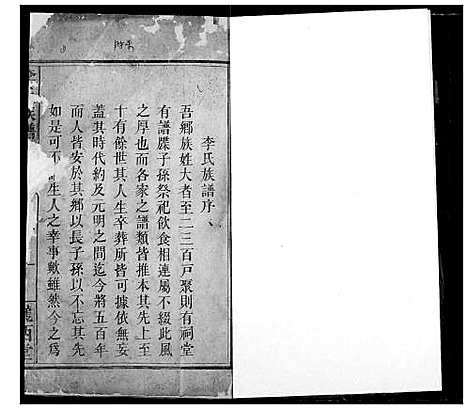 李氏族譜序
吾鄉族姓大者至二三百戶聚則有祠堂
有譜牒子孫祭祀飲食相連屬不綴此風
之厚也而各家之譜類皆推本其先上至
十有餘世其人生卒葬所皆可據依無妄
蓋其時代約及元明之間迄今將五百年
而人皆安於其鄉以長子孫以不忘其先
如是可不 生人之幸事歟雖然今之為
族譜